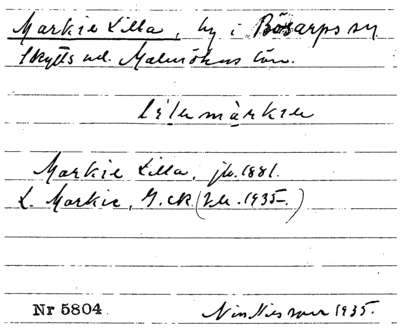 Markie Lilla, by i Bösarps sn
Skytts hd. Malmöhus län.
lilla märkie
Markie Lilla, jb. 1881.
L. Markie, G.ck (1935.)
Nr 5804 1935.